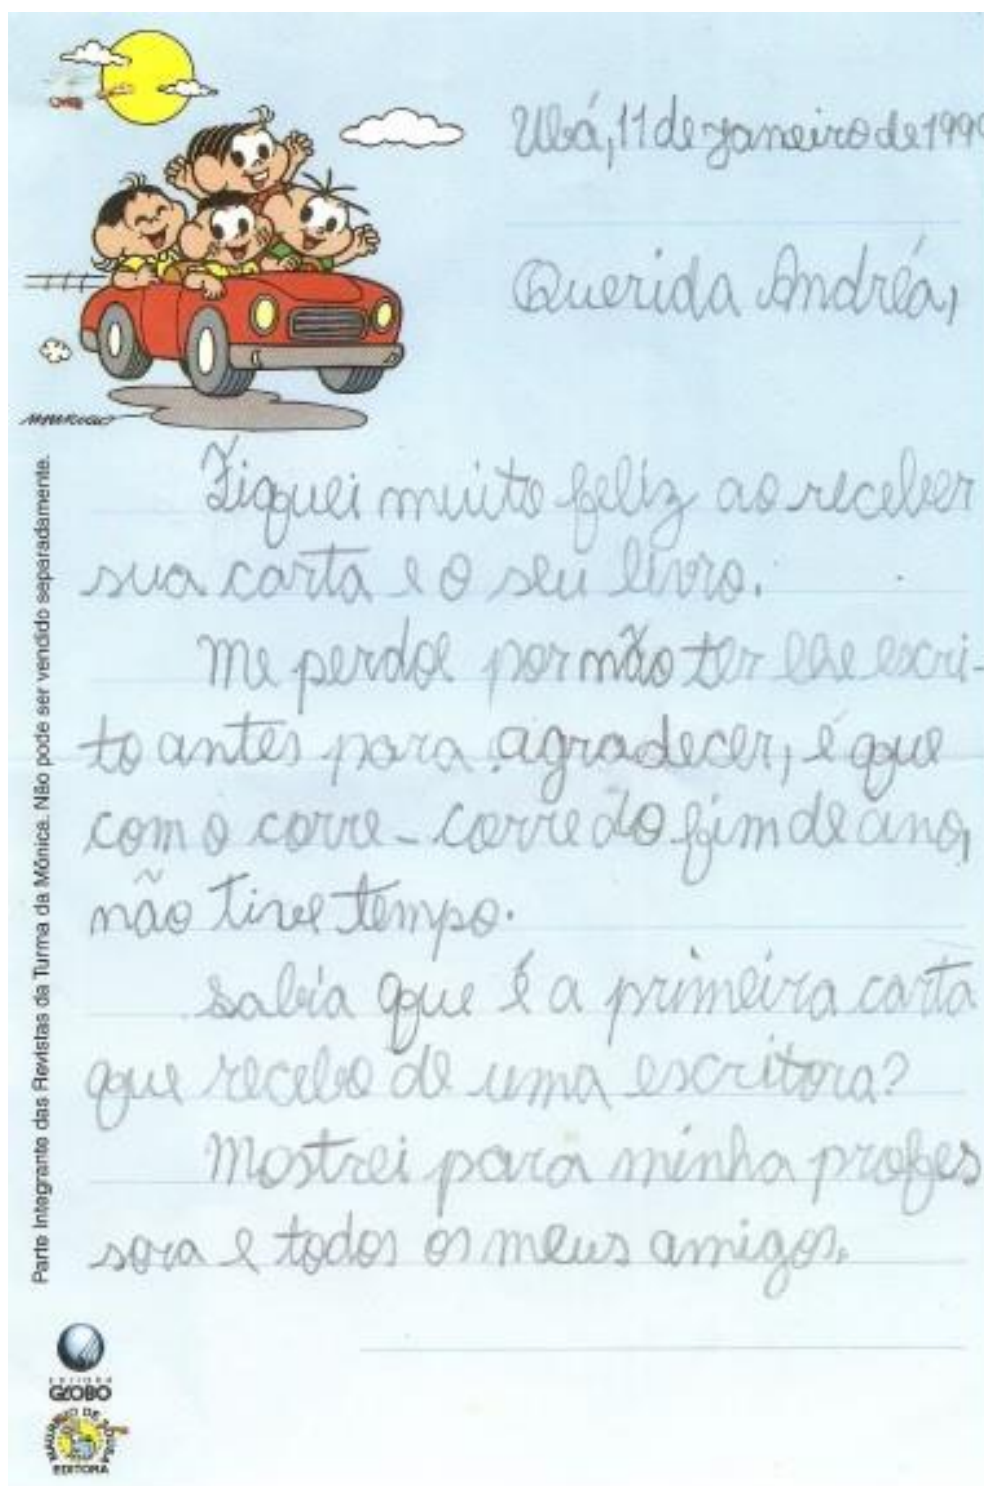 Ubá, 11 de janeiro de 1999
Querida Andréa,
Fiquei muito feliz ao receber
sua carta e o seu livro.
Me perdoe por não ter lhe escri-
to antes para agradecer, é que
com o corre-corre do fim de ano,
não tive tempo.
Sabia que é a primeira carta
que recebo de uma escritora?
Mostrei para minha profes
sora e todos os meus amigos.
Parte Integrante das Revistas da Turma da Mônica. Não pode ser vendido separadamente.
EDITORA
GLOBO
MAURICIO DE SOUSA
EDITORA